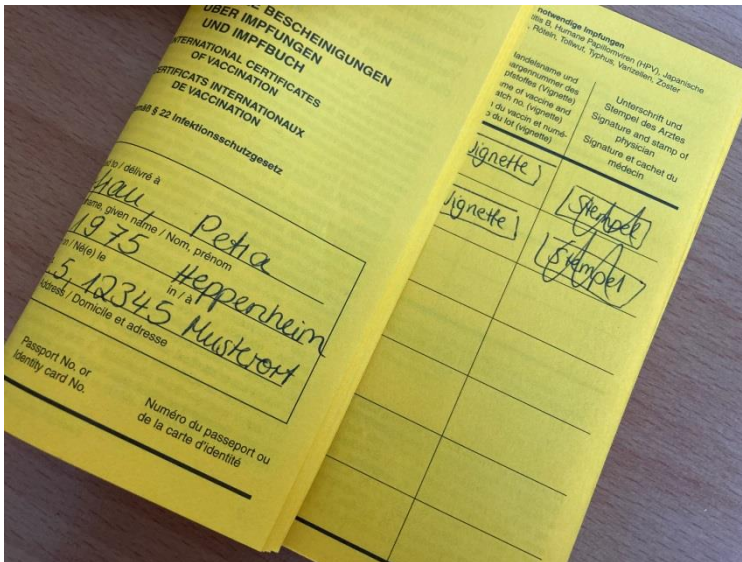 BESCHEINIGUNGEN
ÜBER IMPFUNGEN
UND IMPFBUCH
INTERNATIONAL CERTIFICATES
OF VACCINATION
CERTIFICATS INTERNATIONAUX
DE VACCINATION
§ 22 Infektionsschutzgesetz
to / délivré à
Petra
name, given name / Nom, prénom
1975 Heppenheim
/ Né(e) le in / à
5, 12345 Musterort
address / Domicile et adresse
Passport No. or
Identity card No.
Numéro du passeport ou
de la carte d'identité
notwendige Impfungen
B, Humane Papillomviren (HPV), Japanische
Röteln, Tollwut, Typhus, Varizellen, Zoster
Handelsname und
Chargennummer des
Impfstoffes (Vignette)
name of vaccine and
batch no. (vignette)
du vaccin et numé-
ro du lot (vignette)
Unterschrift und
Stempel des Arztes
Signature and stamp of
physician
Signature et cachet du
médecin
Vignette Stempel
Vignette Stempel